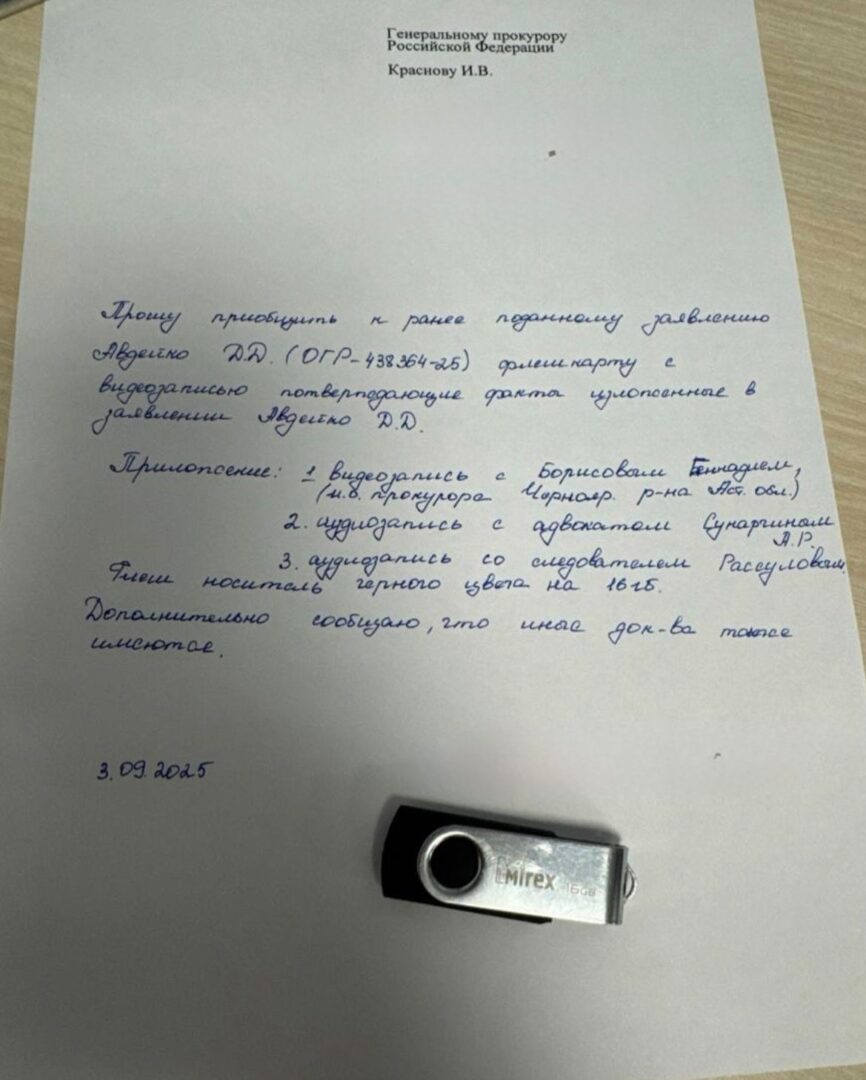 Генеральному прокурору
Российской Федерации
Краснову И.В.
Прошу приобщить к ранее поданному заявлению
Авдейко Д.Д. (ОГР-438364-25) флешкарту с
видеозаписью потверждающие факты изложенные в
заявлении Авдейко Д.Д.
Приложение: 1 видеозапись с Борисовым Геннадием,
(и.о. прокурора Чернояр. р-на Аст. обл.)
2. аудиозапись с адвокатом Сунаргином
А.Р.
3. аудиозапись со следователем Рассуловым.
Флеш носитель черного цвета на 16 гб.
Дополнительно сообщаю, что иные док-ва также
имеются.
3.09.2025
mirex 16GB